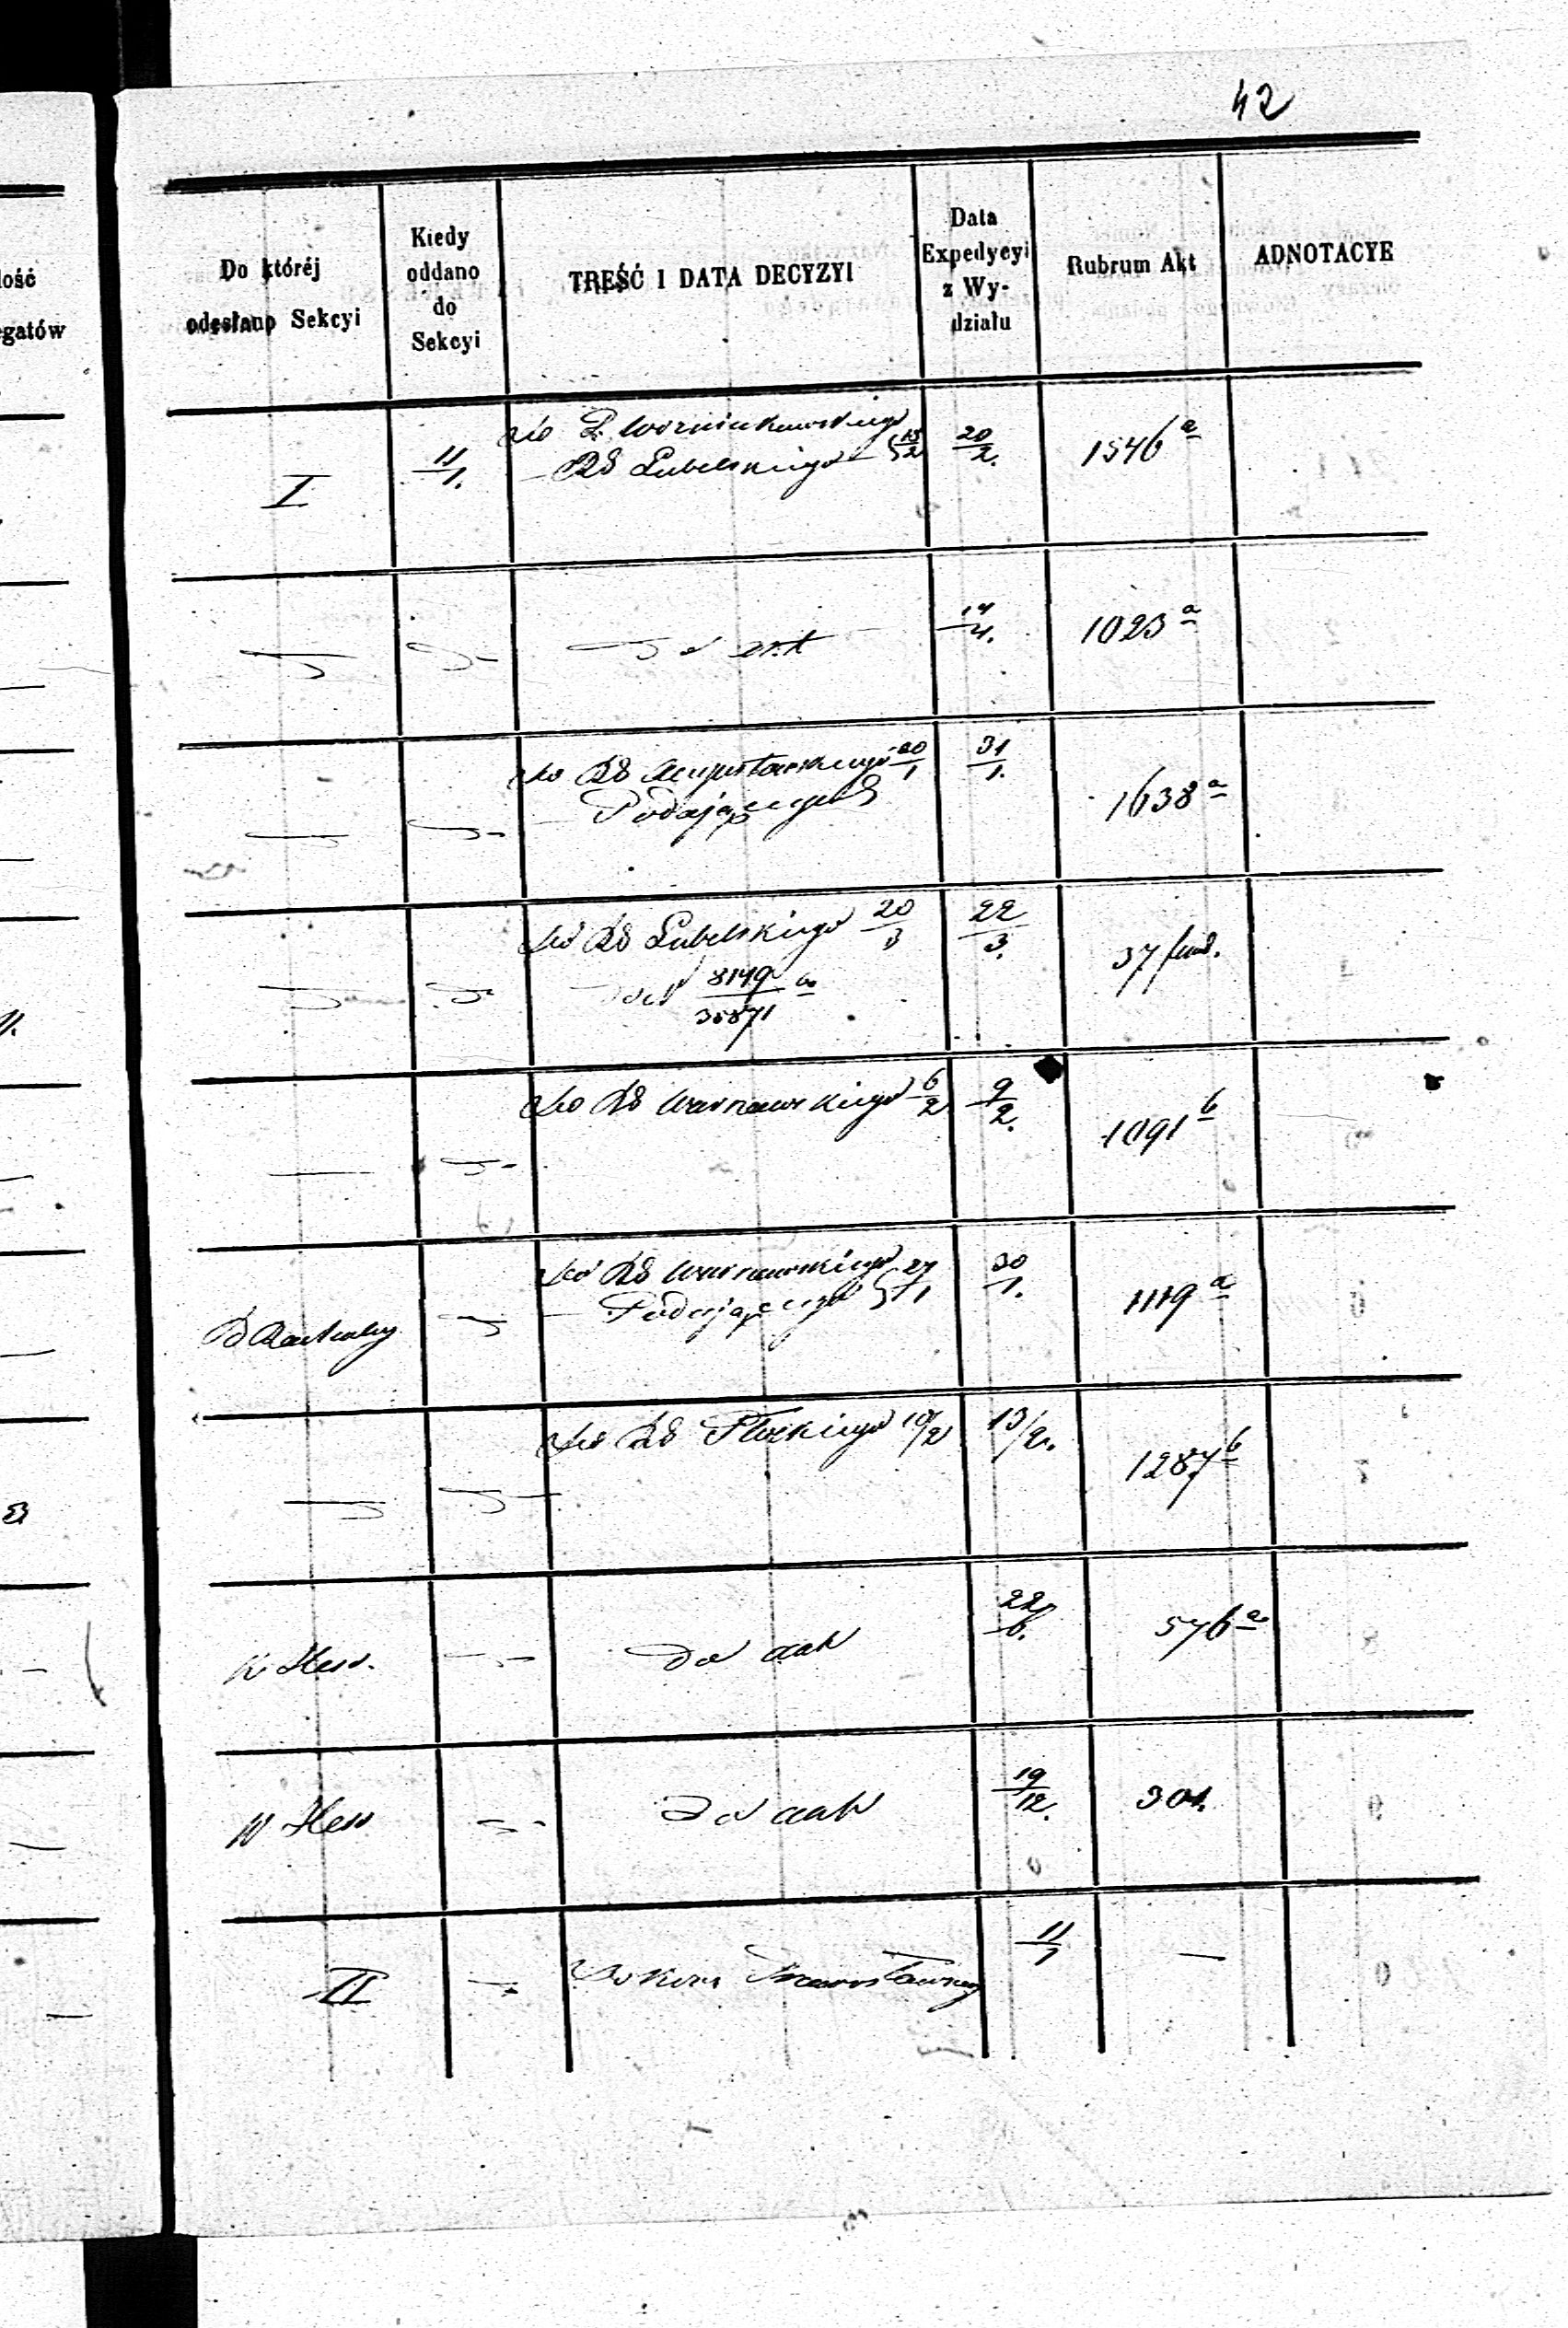 42
lość
egatów
Do któréj
odesłano Sekcyi
Kiedy
oddano
do
Sekcyi
TREŚĆ I DATA DECYZYI
Data
Expedycyi
z Wy-
działu
Rubrum Akt
ADNOTACYE
I
11/1.
do P.
RG Lubelskiego 15/2
20/2.
1546 a
14/4.
1023 a
do RG Augustowskiego 20/1
Podającego
31/1.
1638 a
do RG Lubelskiego 20/3
8149/35871 a
22/3.
37
do RG Warszawskiego 6/2
9/2.
1091 b
do RG Warszawskiego 27/1
Podającego
30/1.
1119 a
do RG Płockiego 10/2
13/2.
1287 b
W Hess.
do akt
22/6.
576 a
W Hess
do akt
19/12.
301.
II
11/1
—